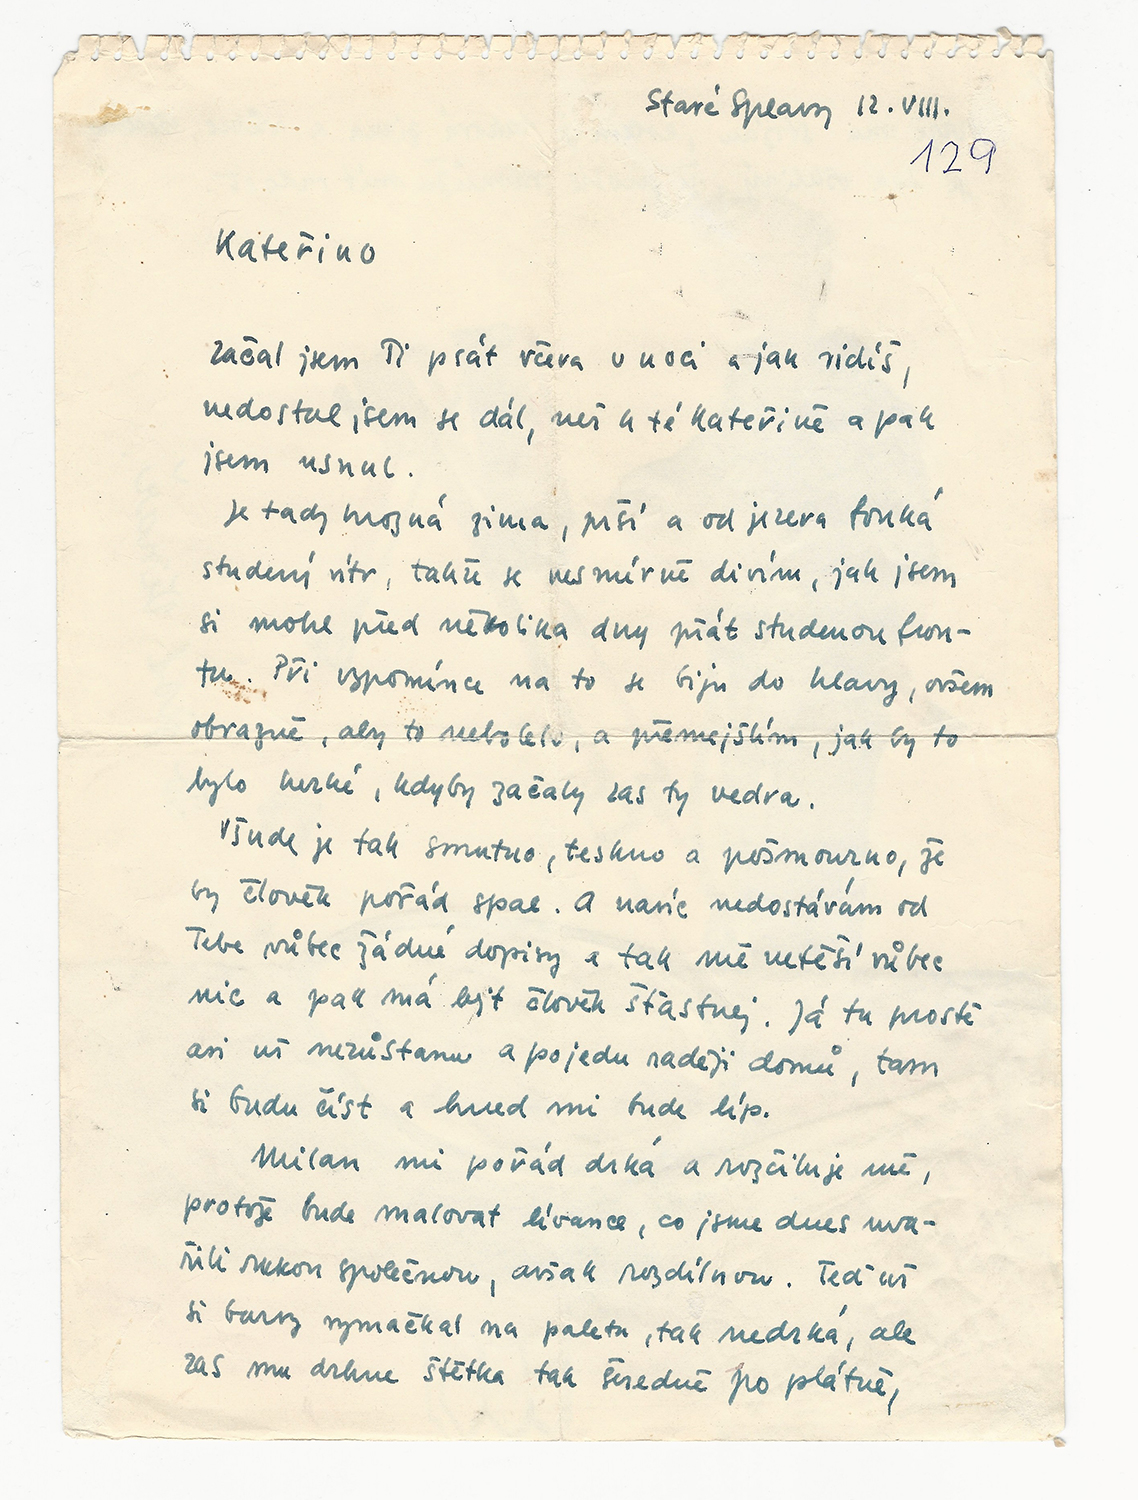 Staré Splavy 12. VIII.
129
Kateřino
Začal jsem Ti psát včera v noci a jak vidíš,
nedostal jsem se dál, než k té Kateřině a pak
jsem usnul.
Je tady hrozná zima, prší a od jezera fouká
studený vítr, takže se nesmírně divím, jak jsem
si mohl před několika dny přát studenou fron-
tu. Při vzpomínce na to se biju do hlavy, ovšem
obrazně, aby to nebolelo, a přemejšlím, jak by to
bylo hezké, kdyby začaly zas ty vedra.
Všude je tak smutno, teskno a pošmourno, že
by člověk pořád spal. A navíc nedostávám od
Tebe vůbec žádné dopisy a tak mě netěší vůbec
nic a pak má bejt člověk šťastnej. Já tu prostě
asi už nezůstanu a pojedu raději domů, tam
si budu číst a hned mi bude líp.
Milan mi pořád drká a rozčiluje mě,
protože bude malovat lívance, co jsme dnes uva-
řili rukou společnou, avšak rozdílnou. Teď už
si barvy vymačkal na paletu, tak nedrká, ale
zas mu drhne štětka tak šeredně po plátně,